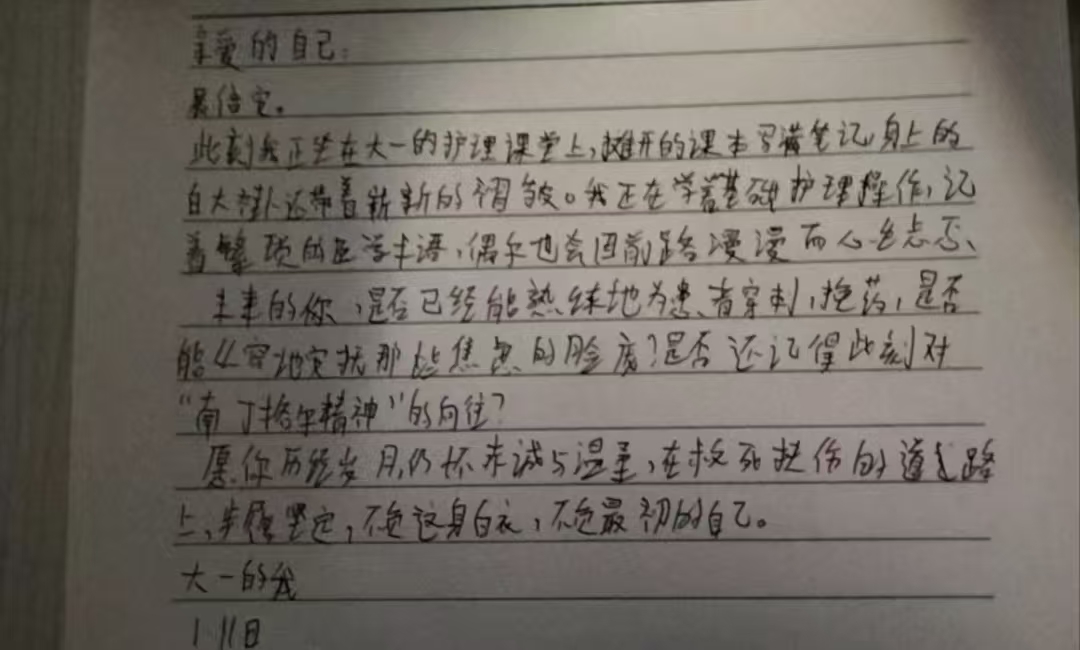 亲爱的自己:
展信安。
此刻我正坐在大一的护理课堂上,摊开的课本写满笔记,身上的
白大褂还带着新新的褶皱。我正在学着基础护理操作,记
着繁琐的医学术语,偶尔也会因前路漫漫而心生忐忑、
未来的你,是否已经能熟练地为患者穿刺,换药,是否
能从容地安抚那些焦虑的脸庞?是否还记得此刻对
“南丁格尔精神”的向往?
愿你历经岁月,仍怀赤诚与温柔,在救死扶伤的道路
上,步履坚定,不负这身白衣,不负最初的自己。
大一的我
1·11日